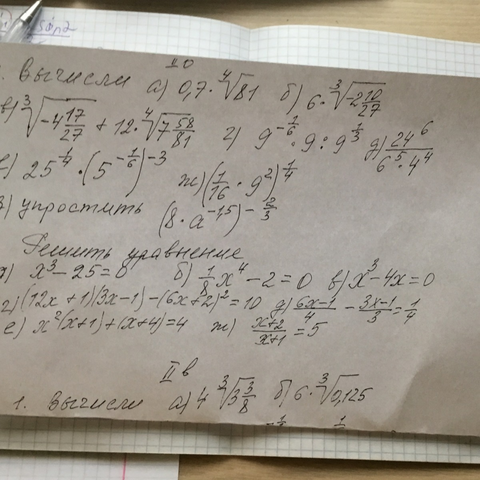 вычисли а) 0,7·⁴√81 б) 6·³√(-2 10/27)
в) ³√(-4 17/27) + 12·⁴√(7 58/81) г) 9^(-1/6) · 9 : 9^(1/3) д) 24^6/(6^5·4^4)
25^(1/4)·(5^(-1/6))^(-3) ж) (1/16·9^2)^(1/4)
упростить (8·a^(-15))^(-2/3)
Решить уравнение
x^3-25=0 б) 1/8x^4-2=0 в) x^3-4x=0
г) (12x+1)(3x-1)-(6x+2)^2=10 д) (6x-1)/4 - (3x-1)/3 = 1/4
е) x^2(x+1)+(x+4)=4 ж) (x+2)/(x+1)=5
II в
1. вычисли а) 4 ³√(3 3/8) б) 6·³√0,125